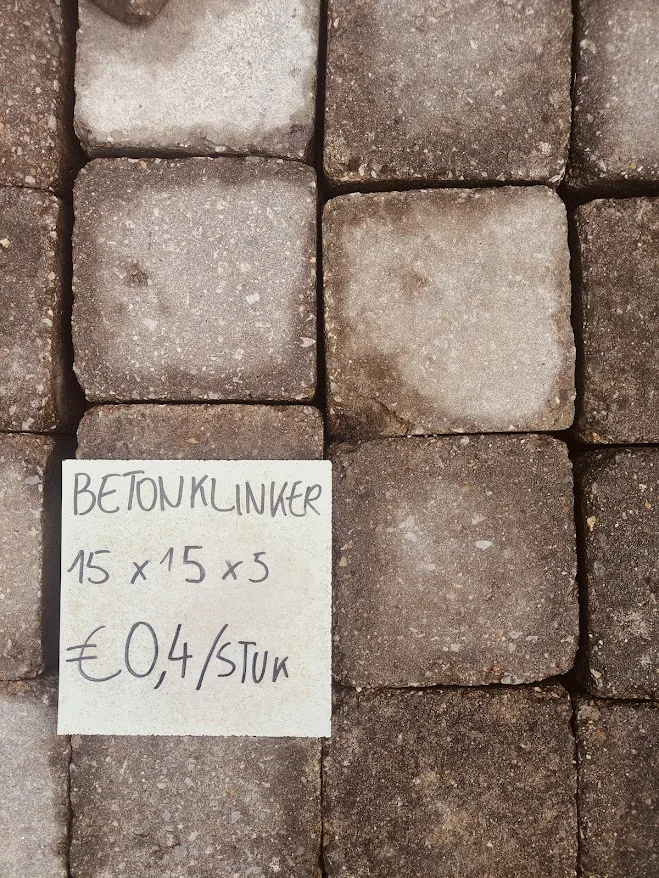 BETONKLINKER
15 x 15 x 5
€0,4/STUK